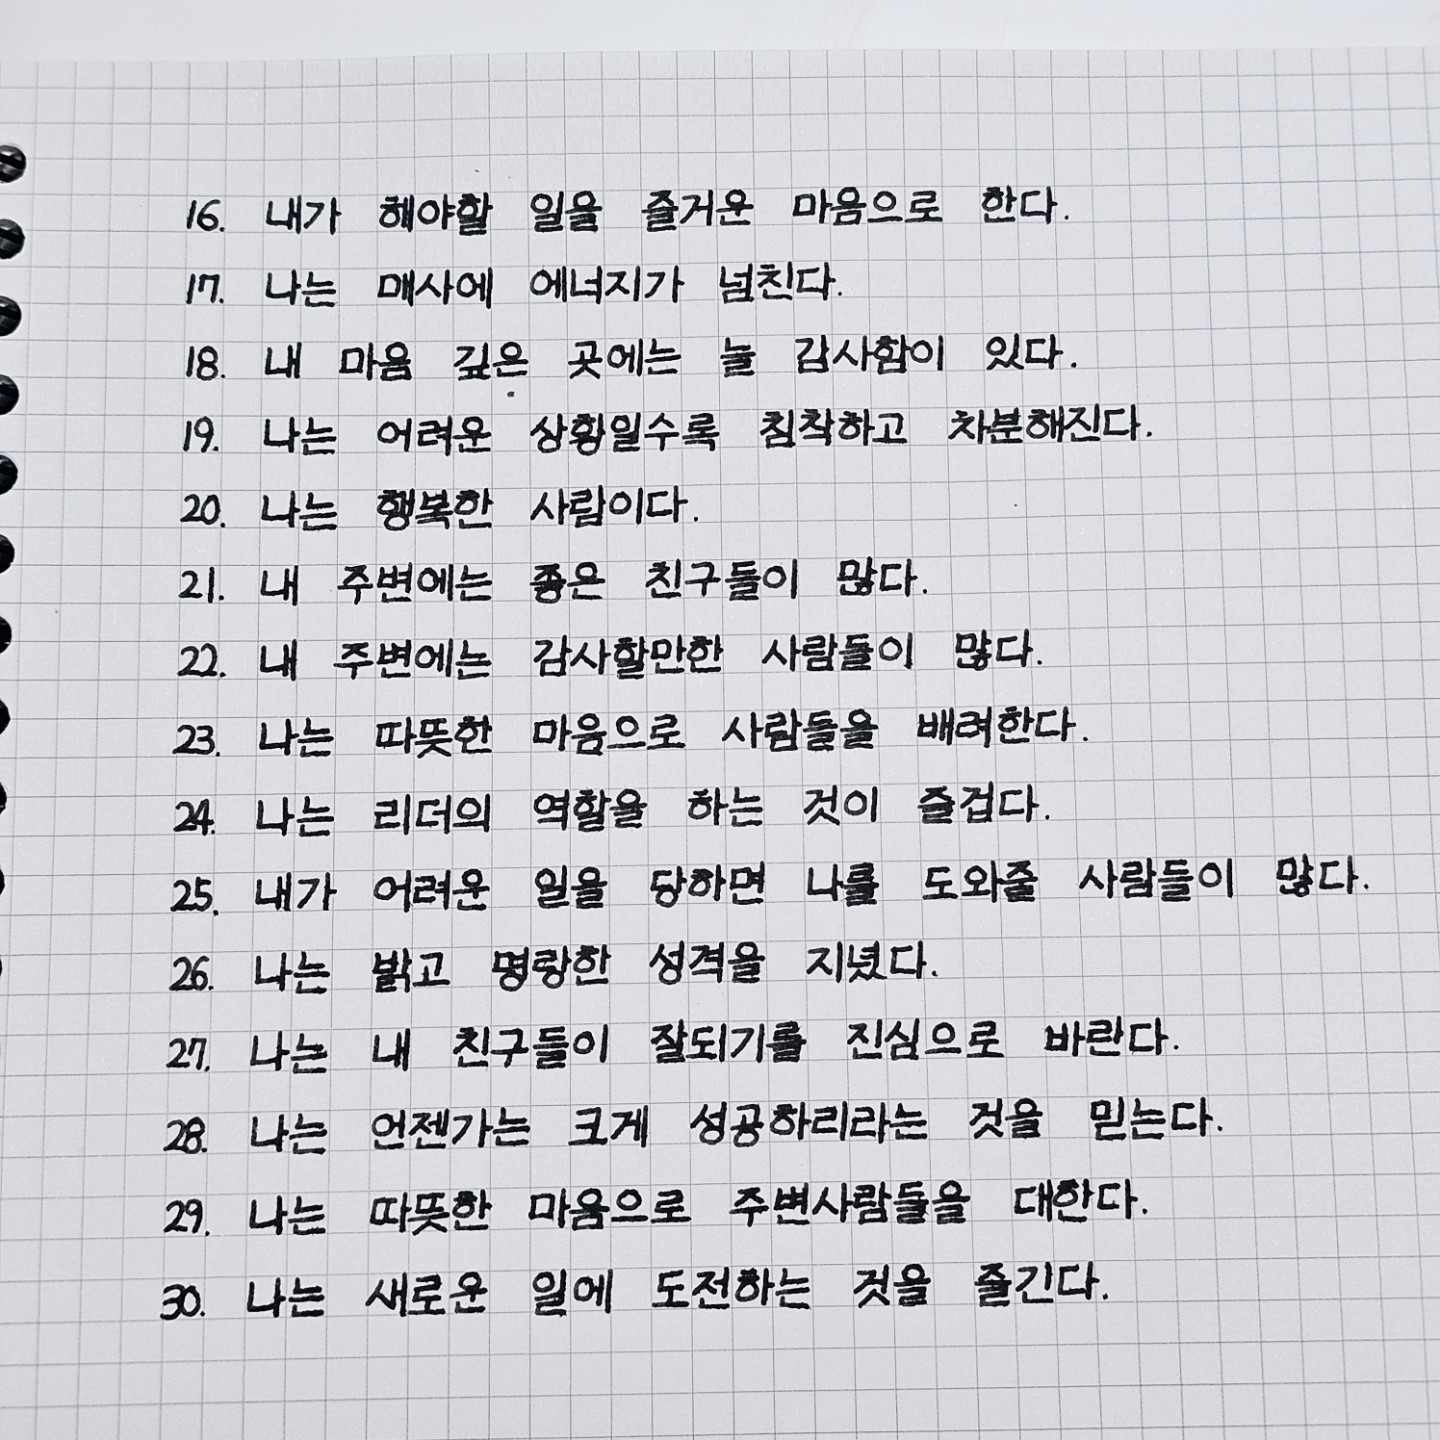 16. 내가 해야할 일을 즐거운 마음으로 한다.
17. 나는 매사에 에너지가 넘친다.
18. 내 마음 깊은 곳에는 늘 감사함이 있다.
19. 나는 어려운 상황일수록 침착하고 차분해진다.
20. 나는 행복한 사람이다.
21. 내 주변에는 좋은 친구들이 많다.
22. 내 주변에는 감사할만한 사람들이 많다.
23. 나는 따뜻한 마음으로 사람들을 배려한다.
24. 나는 리더의 역할을 하는 것이 즐겁다.
25. 내가 어려운 일을 당하면 나를 도와줄 사람들이 많다.
26. 나는 밝고 명랑한 성격을 지녔다.
27. 나는 내 친구들이 잘되기를 진심으로 바란다.
28. 나는 언젠가는 크게 성공하리라는 것을 믿는다.
29. 나는 따뜻한 마음으로 주변사람들을 대한다.
30. 나는 새로운 일에 도전하는 것을 즐긴다.